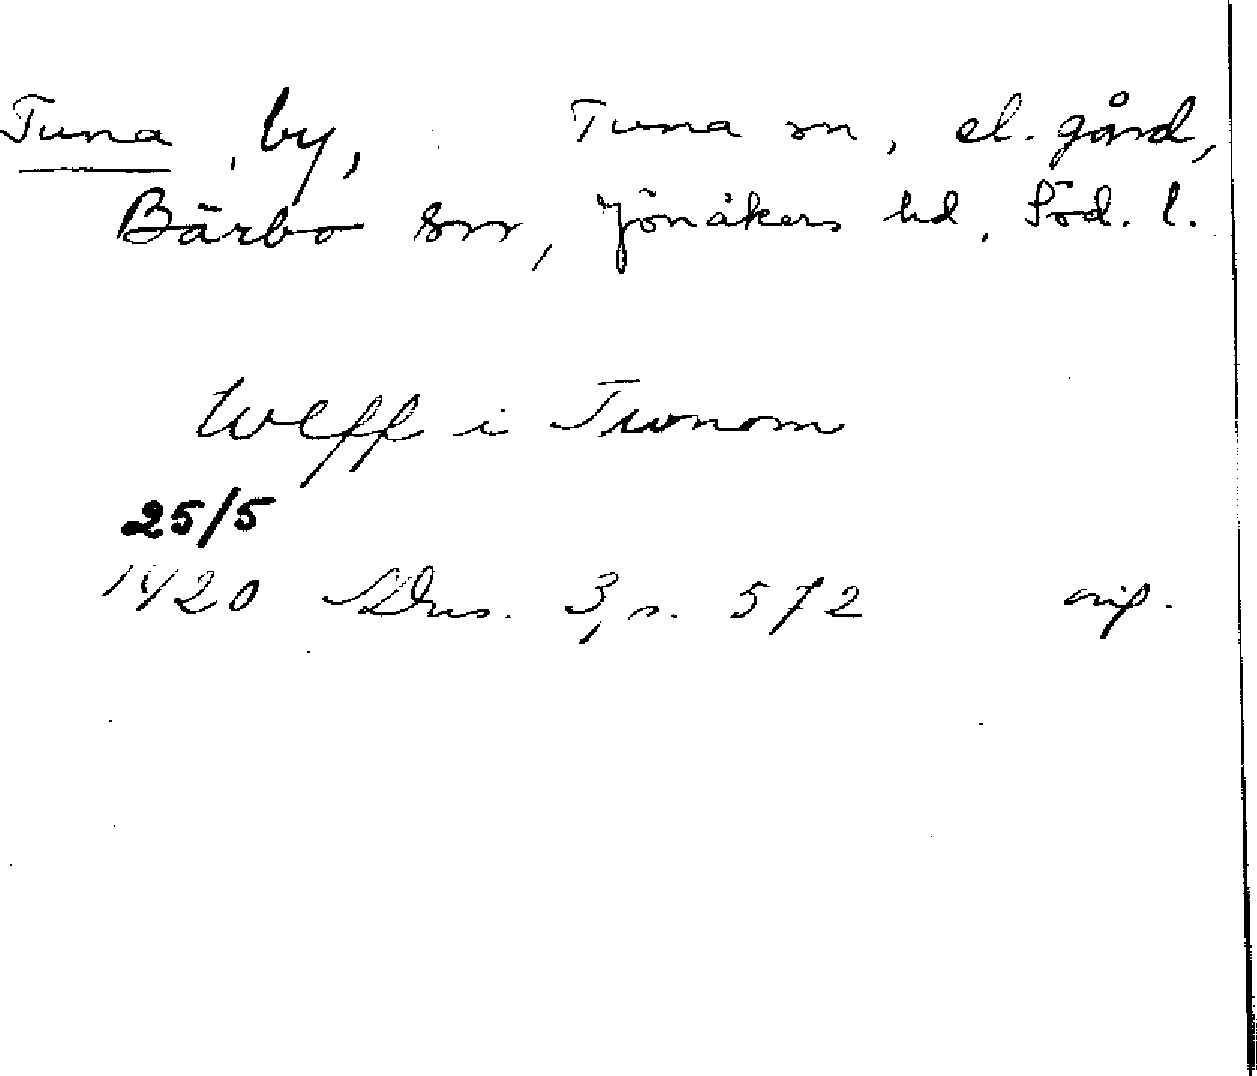 Tuna, by, Tuna sn, el. gård,
Bärbo sn, Jönåkers hd, Söd. l.
Wlff i Tunom
25/5
1420 SDns. 3, s. 572 orig.